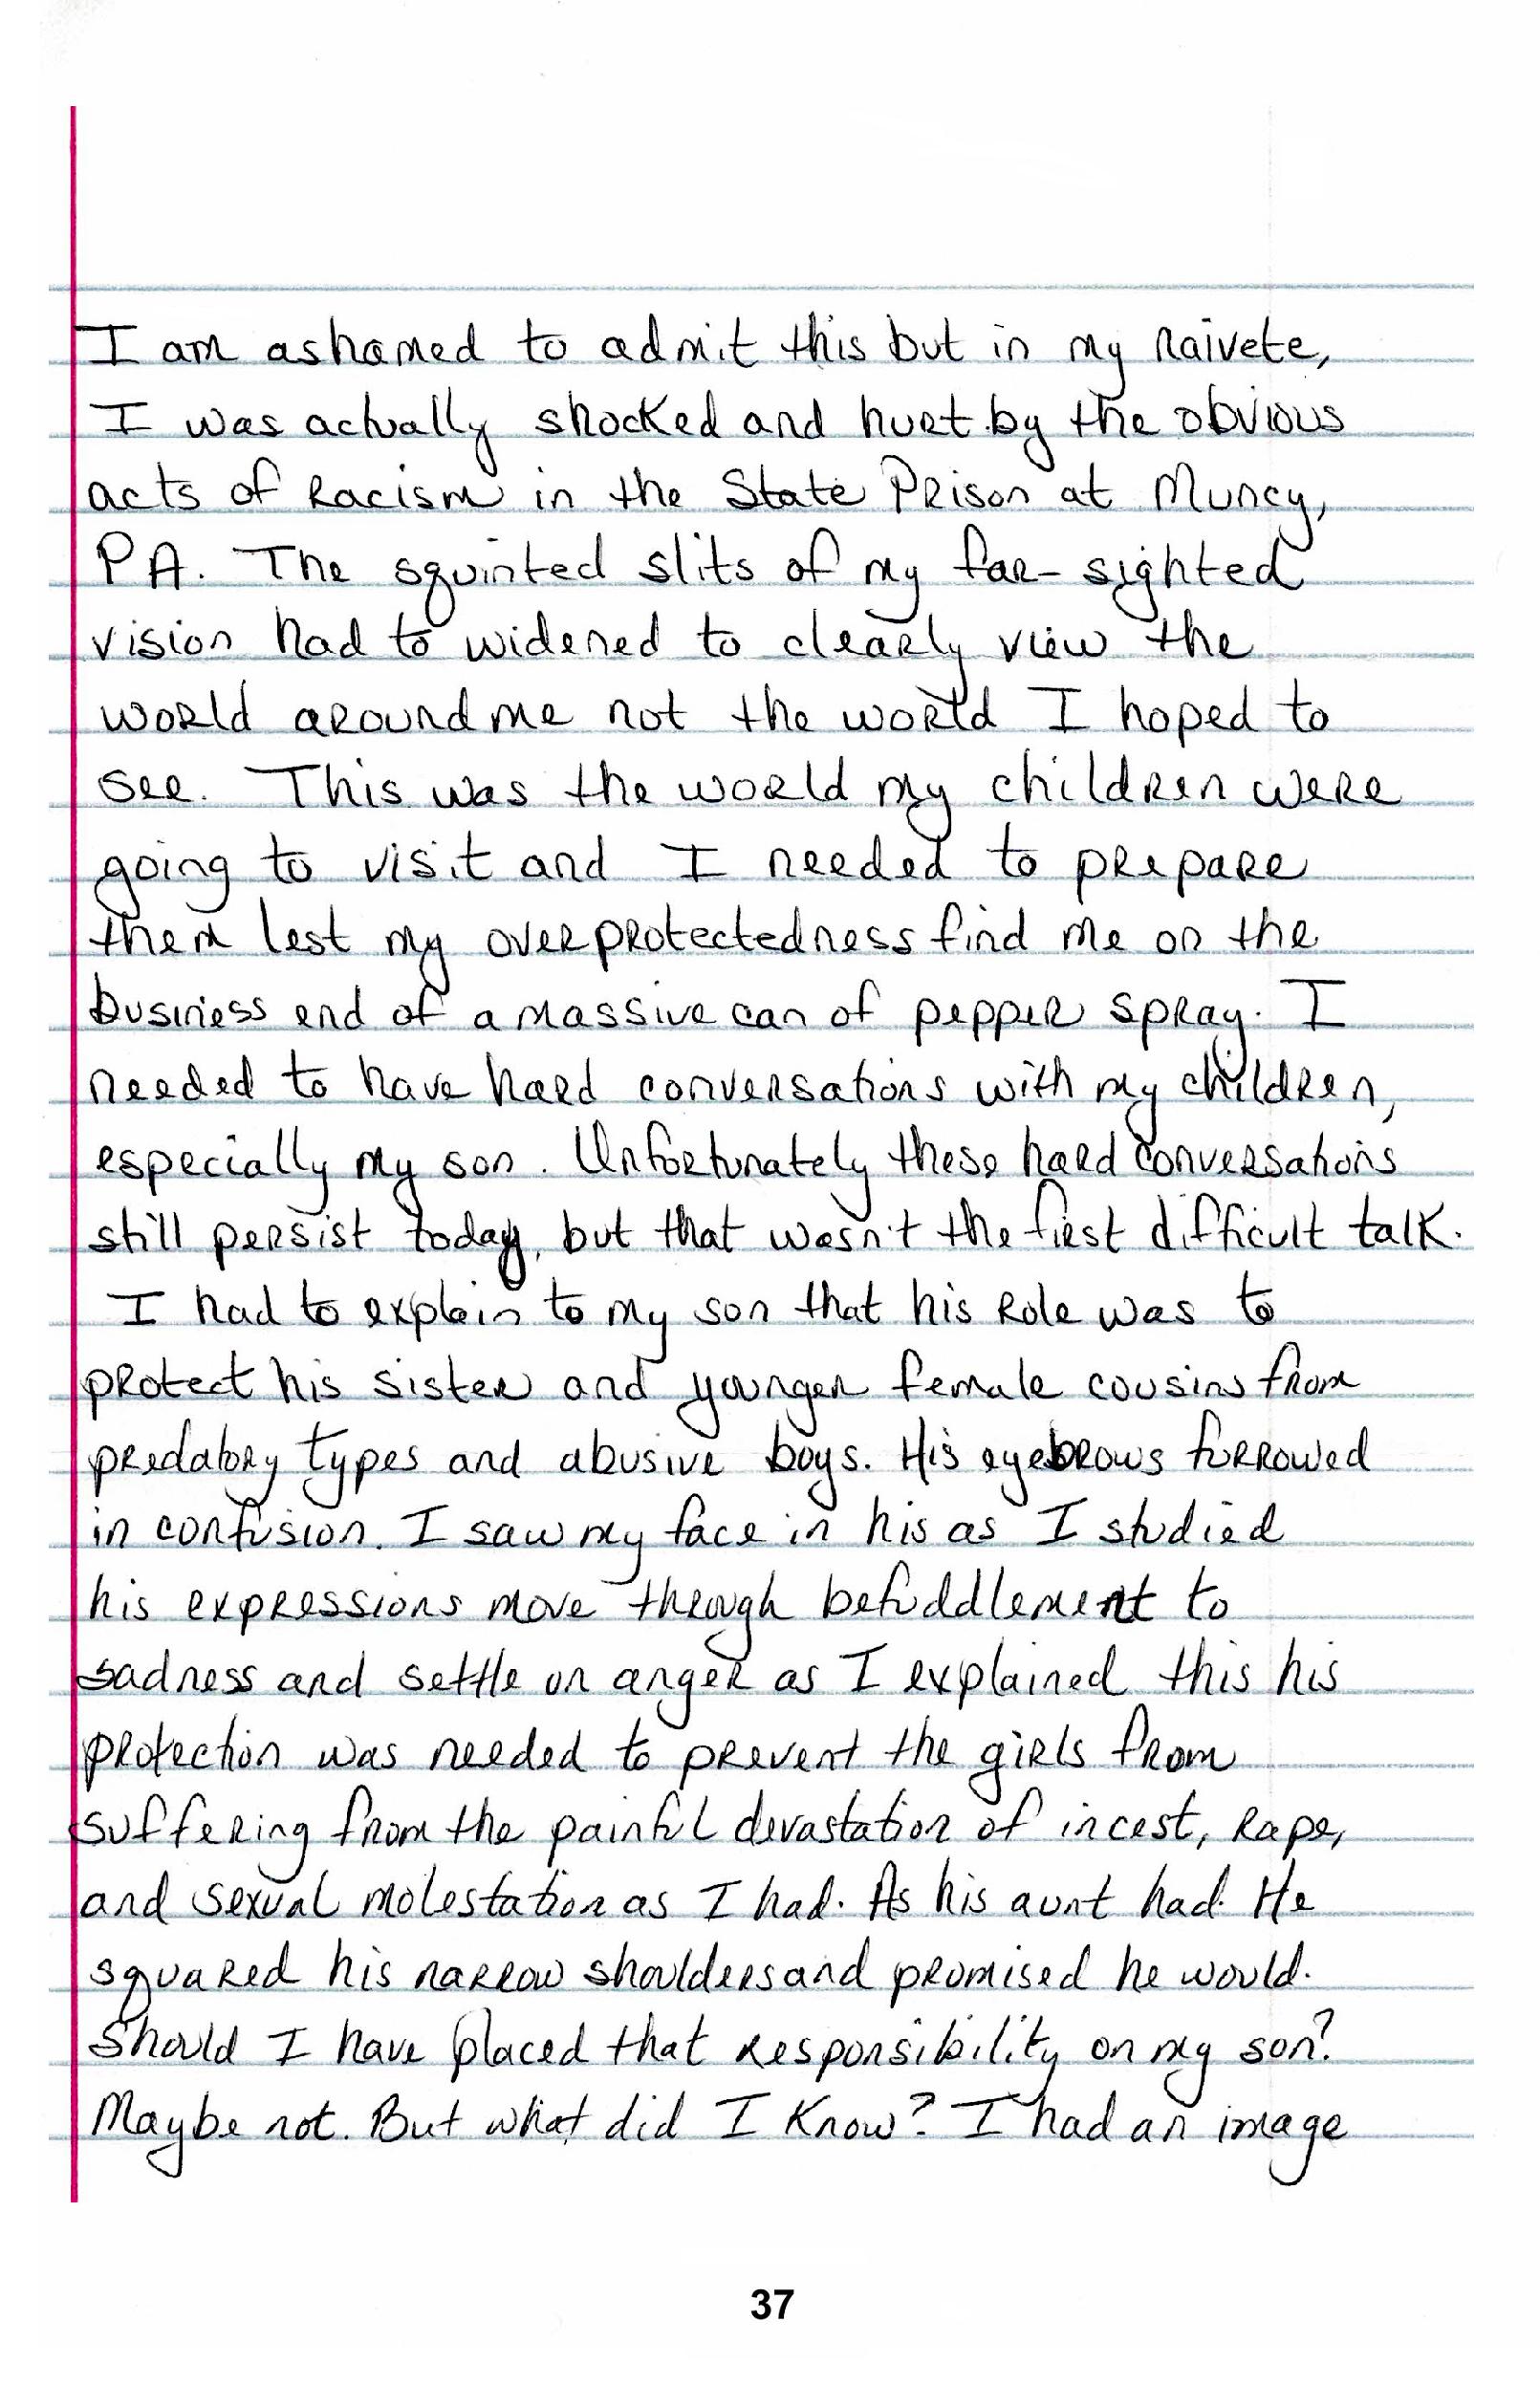 I am ashamed to admit this but in my naivete,
I was actually shocked and hurt by the obvious
acts of Racism in the State Prison at Muncy,
PA. The squinted slits of my far-sighted
vision had to widened to clearly view the
world around me not the world I hoped to
see. This was the world my children were
going to visit and I needed to prepare
them lest my overprotectedness find me on the
business end of a massive can of pepper spray. I
needed to have hard conversations with my children,
especially my son. Unfortunately these hard conversations
still persist today, but that wasn't the first difficult talk.
I had to explain to my son that his role was to
protect his sister and younger female cousins from
predatory types and abusive boys. His eyebrows furrowed
in confusion. I saw my face in his as I studied
his expressions move through befuddlement to
sadness and settle on anger as I explained this his
protection was needed to prevent the girls from
suffering from the painful devastation of incest, rape,
and sexual molestation as I had. As his aunt had. He
squared his narrow shoulders and promised he would.
Should I have placed that responsibility on my son?
Maybe not. But what did I know? I had an image
37